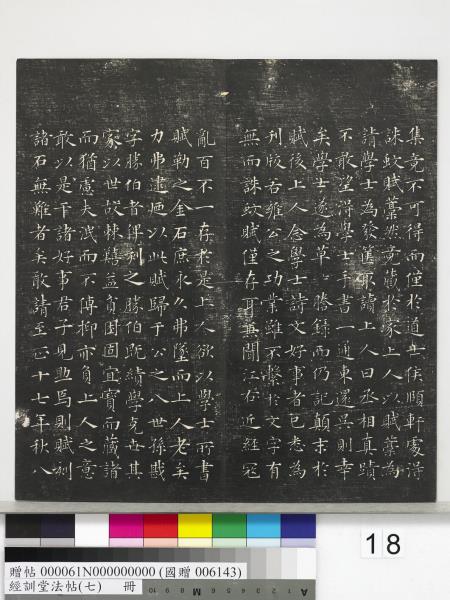 集竟不可得而僅於道士侯頤軒處得
誅蚊賦藁然竟藏於家上人以賦藁為
請學士為發舊取讀上人曰丞相真蹟
不敢望得學士手書一通東還吳則幸
矣學士遂為草〻謄錄而仍記顛末於
賦後上人念學士詩文好事者已悉為
刊版古雍公之功業雖不繫於文字有
無而誅蚊賦僅存可無聞江存近經冠
亂百不一存於是上人欲以學士所書
賦勒之金石庶永久弗墜而上人老矣
力弗逮廼以此賦歸于公之八世孫戡
字勝伯者俾刻之勝伯既績學克世其
家以世故棘益負困固宜寶而藏諸
而猶慮夫泯而不傅抑亦負上人之意
敢以是干諸好事君子見助焉則賦刻
諸石無難者矣敢請至正十七年秋八
18
贈帖 000061N000000000 (國贈 006143)
經訓堂法帖(七) 冊